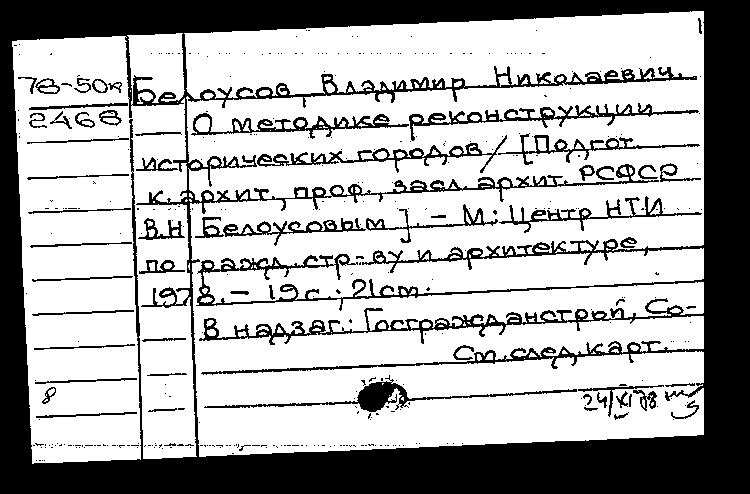 1
78-50к Белоусов, Владимир Николаевич.
2468 О методике реконструкции
исторических городов / [Подгот.
к. архит., проф., засл. архит. РСФСР
В.Н Белоусовым]. - М.: Центр НТИ
по гражд. стр-ву и архитектуре,
1978. - 19 с.; 21 см.
В надзаг.: Госгражданстрой, Со-
См. след. карт.
8
24/XI 78